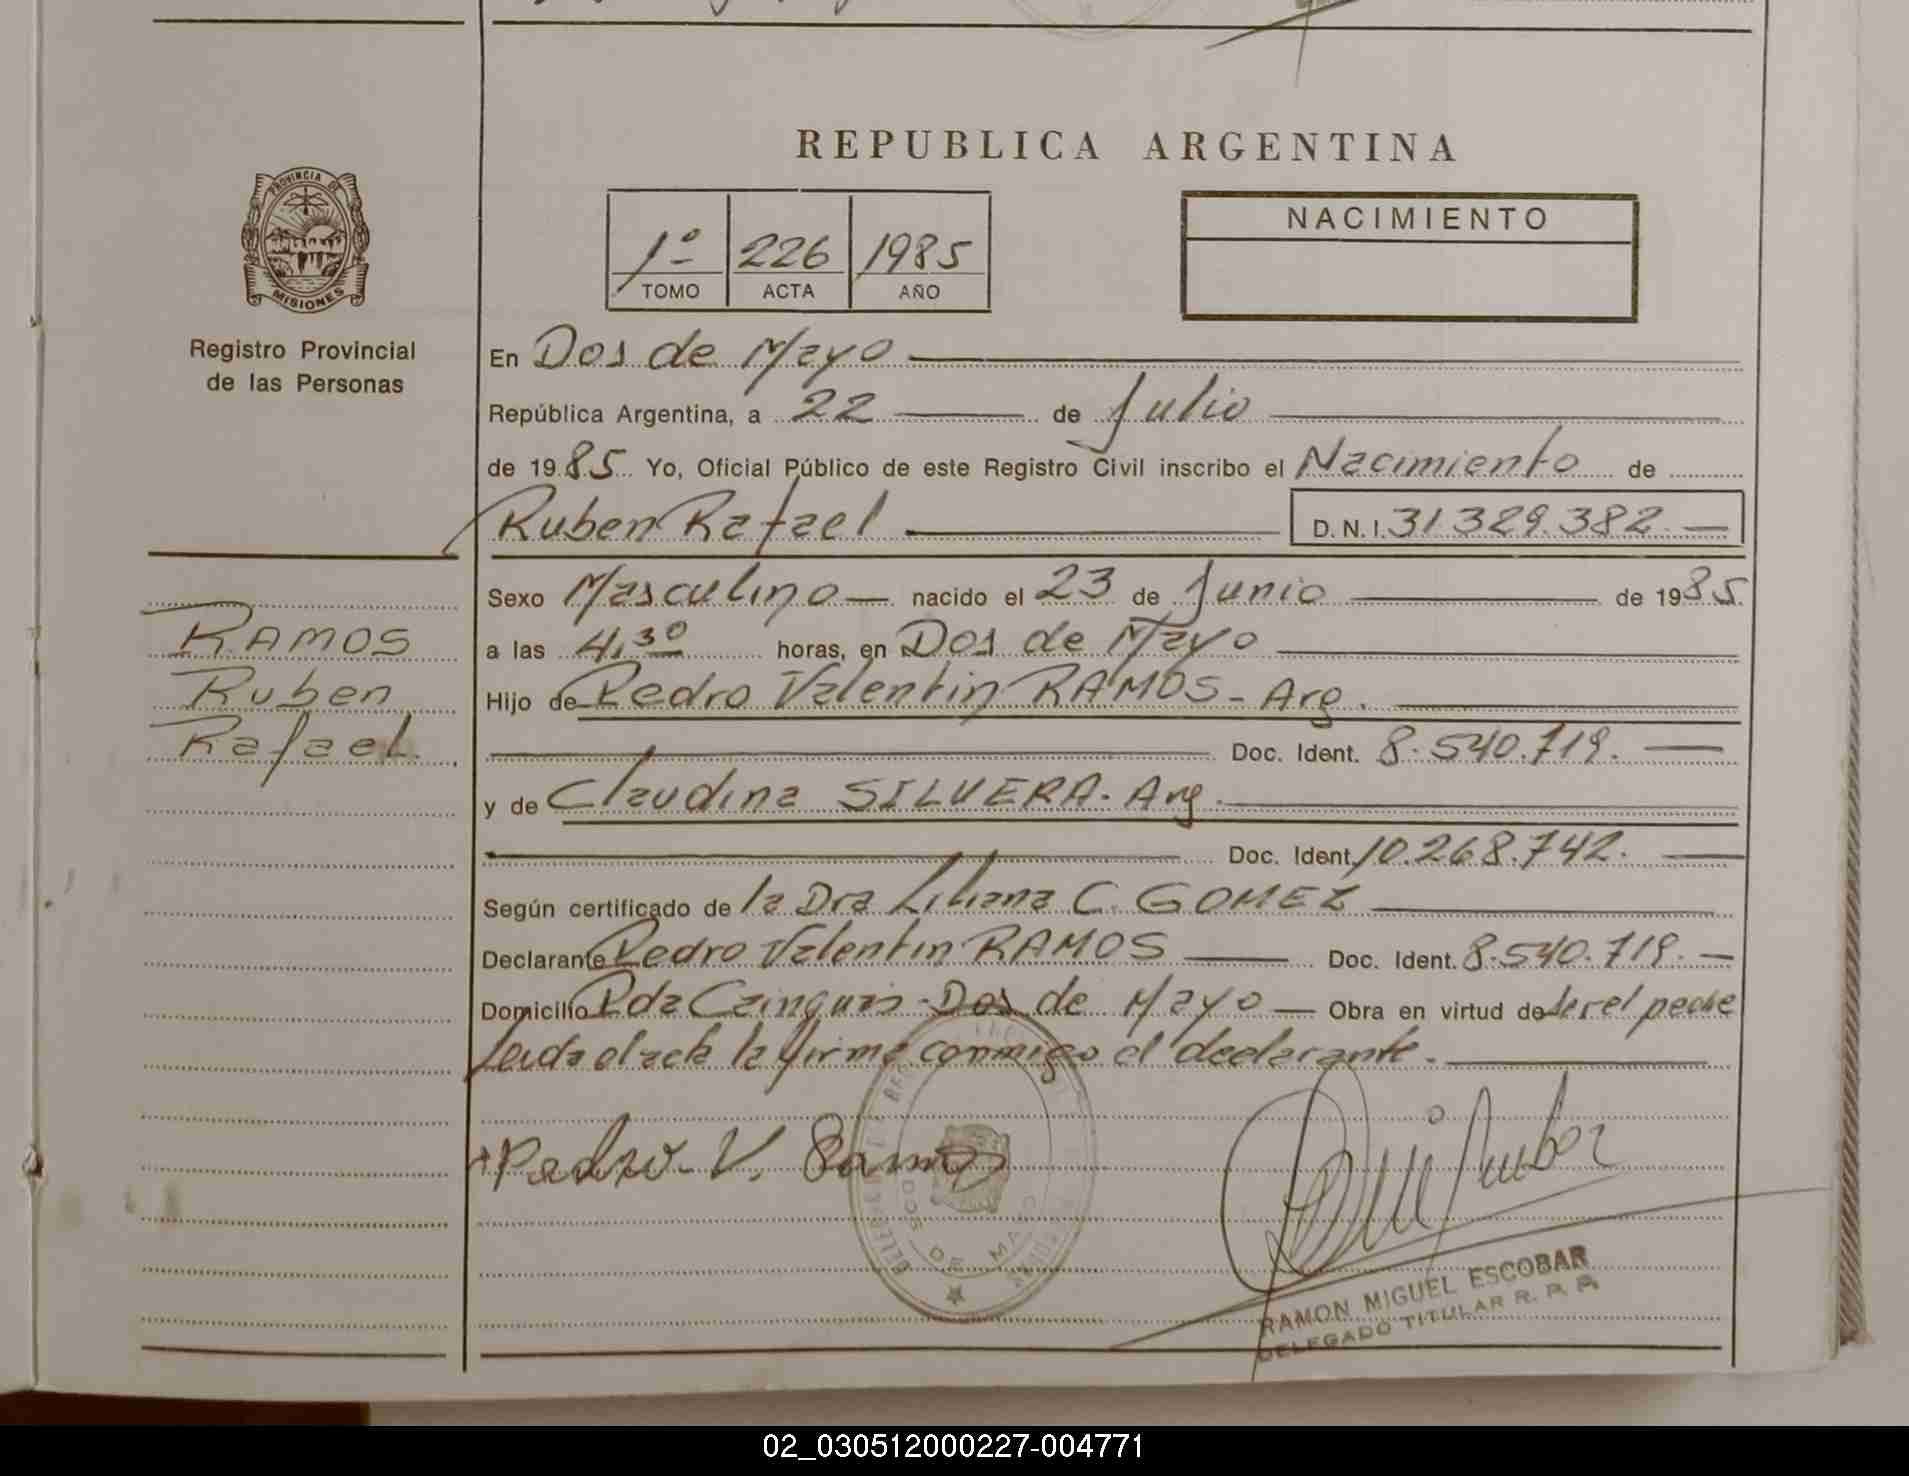 REPUBLICA ARGENTINA
PROVINCIA DE
MISIONES
Registro Provincial
de las Personas
1º 226 1985
TOMO ACTA AÑO
NACIMIENTO
En Dos de Mayo
República Argentina, a 22 de Julio
de 1985 Yo, Oficial Público de este Registro Civil inscribo el Nacimiento de
Ruben Rafael D. N. I. 31329.382.
Sexo Masculino nacido el 23 de Junio de 1985.
RAMOS
Ruben
Rafael.
a las 4,30 horas, en Dos de Mayo
Hijo de Pedro Valentin RAMOS - Arg.
Doc. Ident. 8.540.719.
y de Claudina SILVERA. Arg.
Doc. Ident. 10.268.742.
Según certificado de la Dra Liliana C. GOMEZ
Declarante Pedro Valentin RAMOS Doc. Ident. 8.540.719.
Domicilio Pda Cainguas - Dos de Mayo Obra en virtud de ser el padre
Leida el acta la firma conmigo el declarante.
Pedro V. Ramos
DOS DE MAYO
RAMON MIGUEL ESCOBAR
DELEGADO TITULAR R. P. P.
02_030512000227-004771